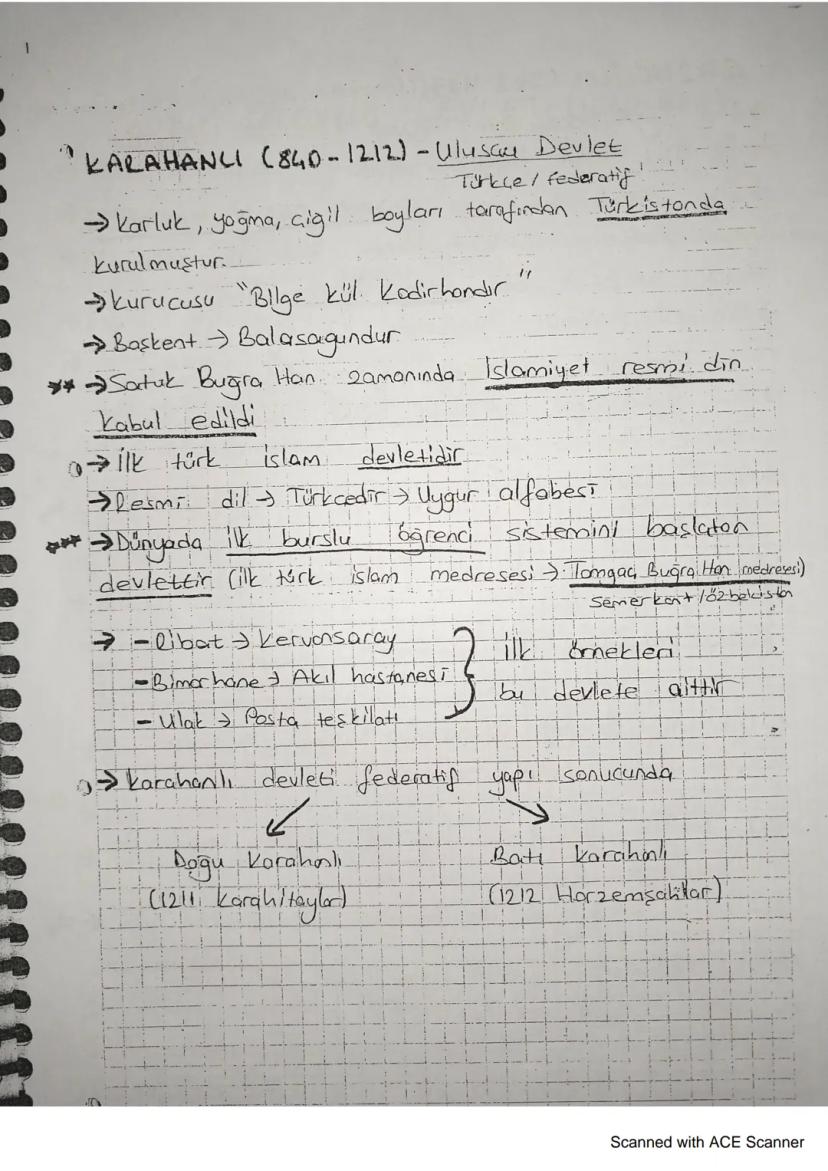 1
KARAHANLI (840-1212) - Ulusçu Devlet
Türkçe / federatif
→ Karluk, yağma, çigil boyları tarafından Türkistanda
kurulmuştur.
→ Kurucusu "Bilge Kül Kadirhandır"
→ Başkent → Balasagundur
** → Satuk Buğra Han zamanında İslamiyet resmi din
kabul edildi
→ İlk türk islam devletidir
→ Resmi dil → Türkçedir → Uygur alfabesi
*** → Dünyada ilk burslu öğrenci sistemini başlatan
devlettir (ilk türk islam medresesi → Tamgaç Buğra Han medresesi)
Semerkant / Özbekistan
→ - Ribat → Kervansaray
- Bimarhane → Akıl hastanesi
- Ulak → Posta teşkilatı
} ilk örnekleri
bu devlete aittir
→ Karahanlı devleti federatif yapı sonucunda
Doğu Karahanlı
(1211 Karahitaylar)
Batı Karahanlı
(1212 Harzemşahlar)
Scanned with ACE Scanner